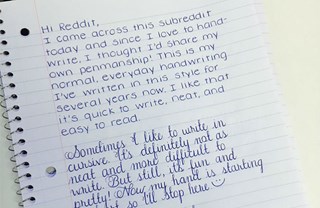 Hi Reddit,
I came across this subreddit
today and since I love to hand-
write, I thought I'd share my
own penmanship! This is my
normal, everyday handwriting
I've written in this style for
several years now. I like that
it's quick to write, neat, and
easy to read.
Sometimes I like to write in
cursive. It's definitely not as
neat and more difficult to
write. But still, it's fun and
pretty! Now my hand is starting
so I'll stop here